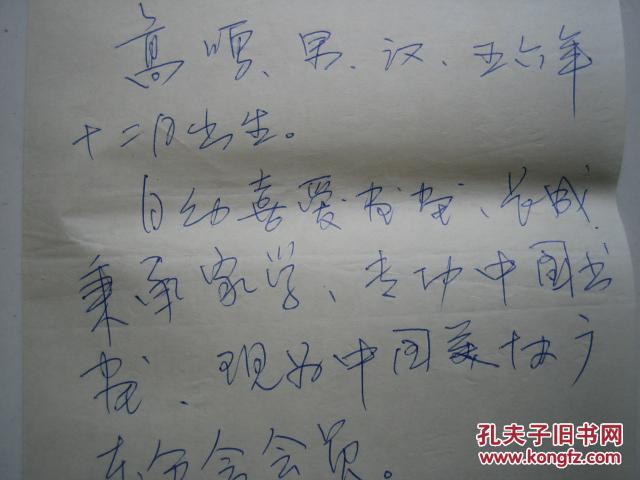 高颂、男、汉、五六年
十二月出生。
自幼喜爱书画、长成
秉承家学、专功中国书
画、现为中国美协广
东分会会员。
孔夫子旧书网
www.kongfz.com